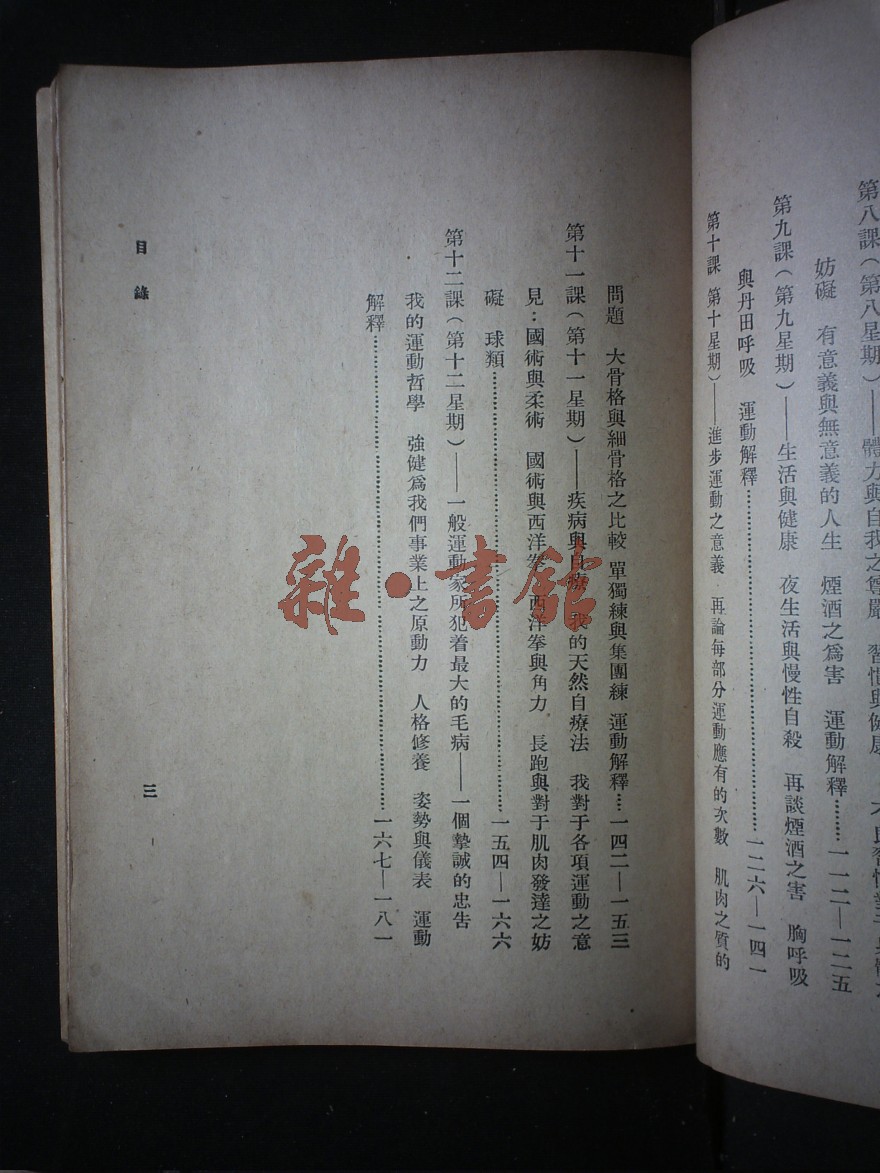 第八課（第八星期）——體力與自我之尊嚴　習慣與健康
妨礙　有意義與無意義的人生　煙酒之爲害　運動解釋……一一二—一二五
第九課（第九星期）——生活與健康　夜生活與慢性自殺　再談煙酒之害　胸呼吸
與丹田呼吸　運動解釋……一二六—一四一
第十課　第十星期）——進步運動之意義　再論每部分運動應有的次數　肌肉之質的
問題　大骨格與細骨格之比較　單獨練與集團練　運動解釋……一四二—一五三
第十一課（第十一星期）——疾病與自療　我的天然自療法　我對于各項運動之意
見：國術與柔術　國術與西洋拳　西洋拳與角力　長跑與對于肌肉發達之妨
礙　球類……一五四—一六六
第十二課（第十二星期）——一般運動家所犯着最大的毛病——一個摯誠的忠告
我的運動哲學　強健爲我們事業上之原動力　人格修養　姿勢與儀表　運動
解釋……一六七—一八一
目錄
三
雜·書館